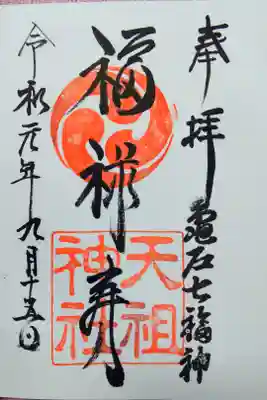 奉拝
龜戸七福神
福禄寿
令和元年九月十五日
天祖
神社